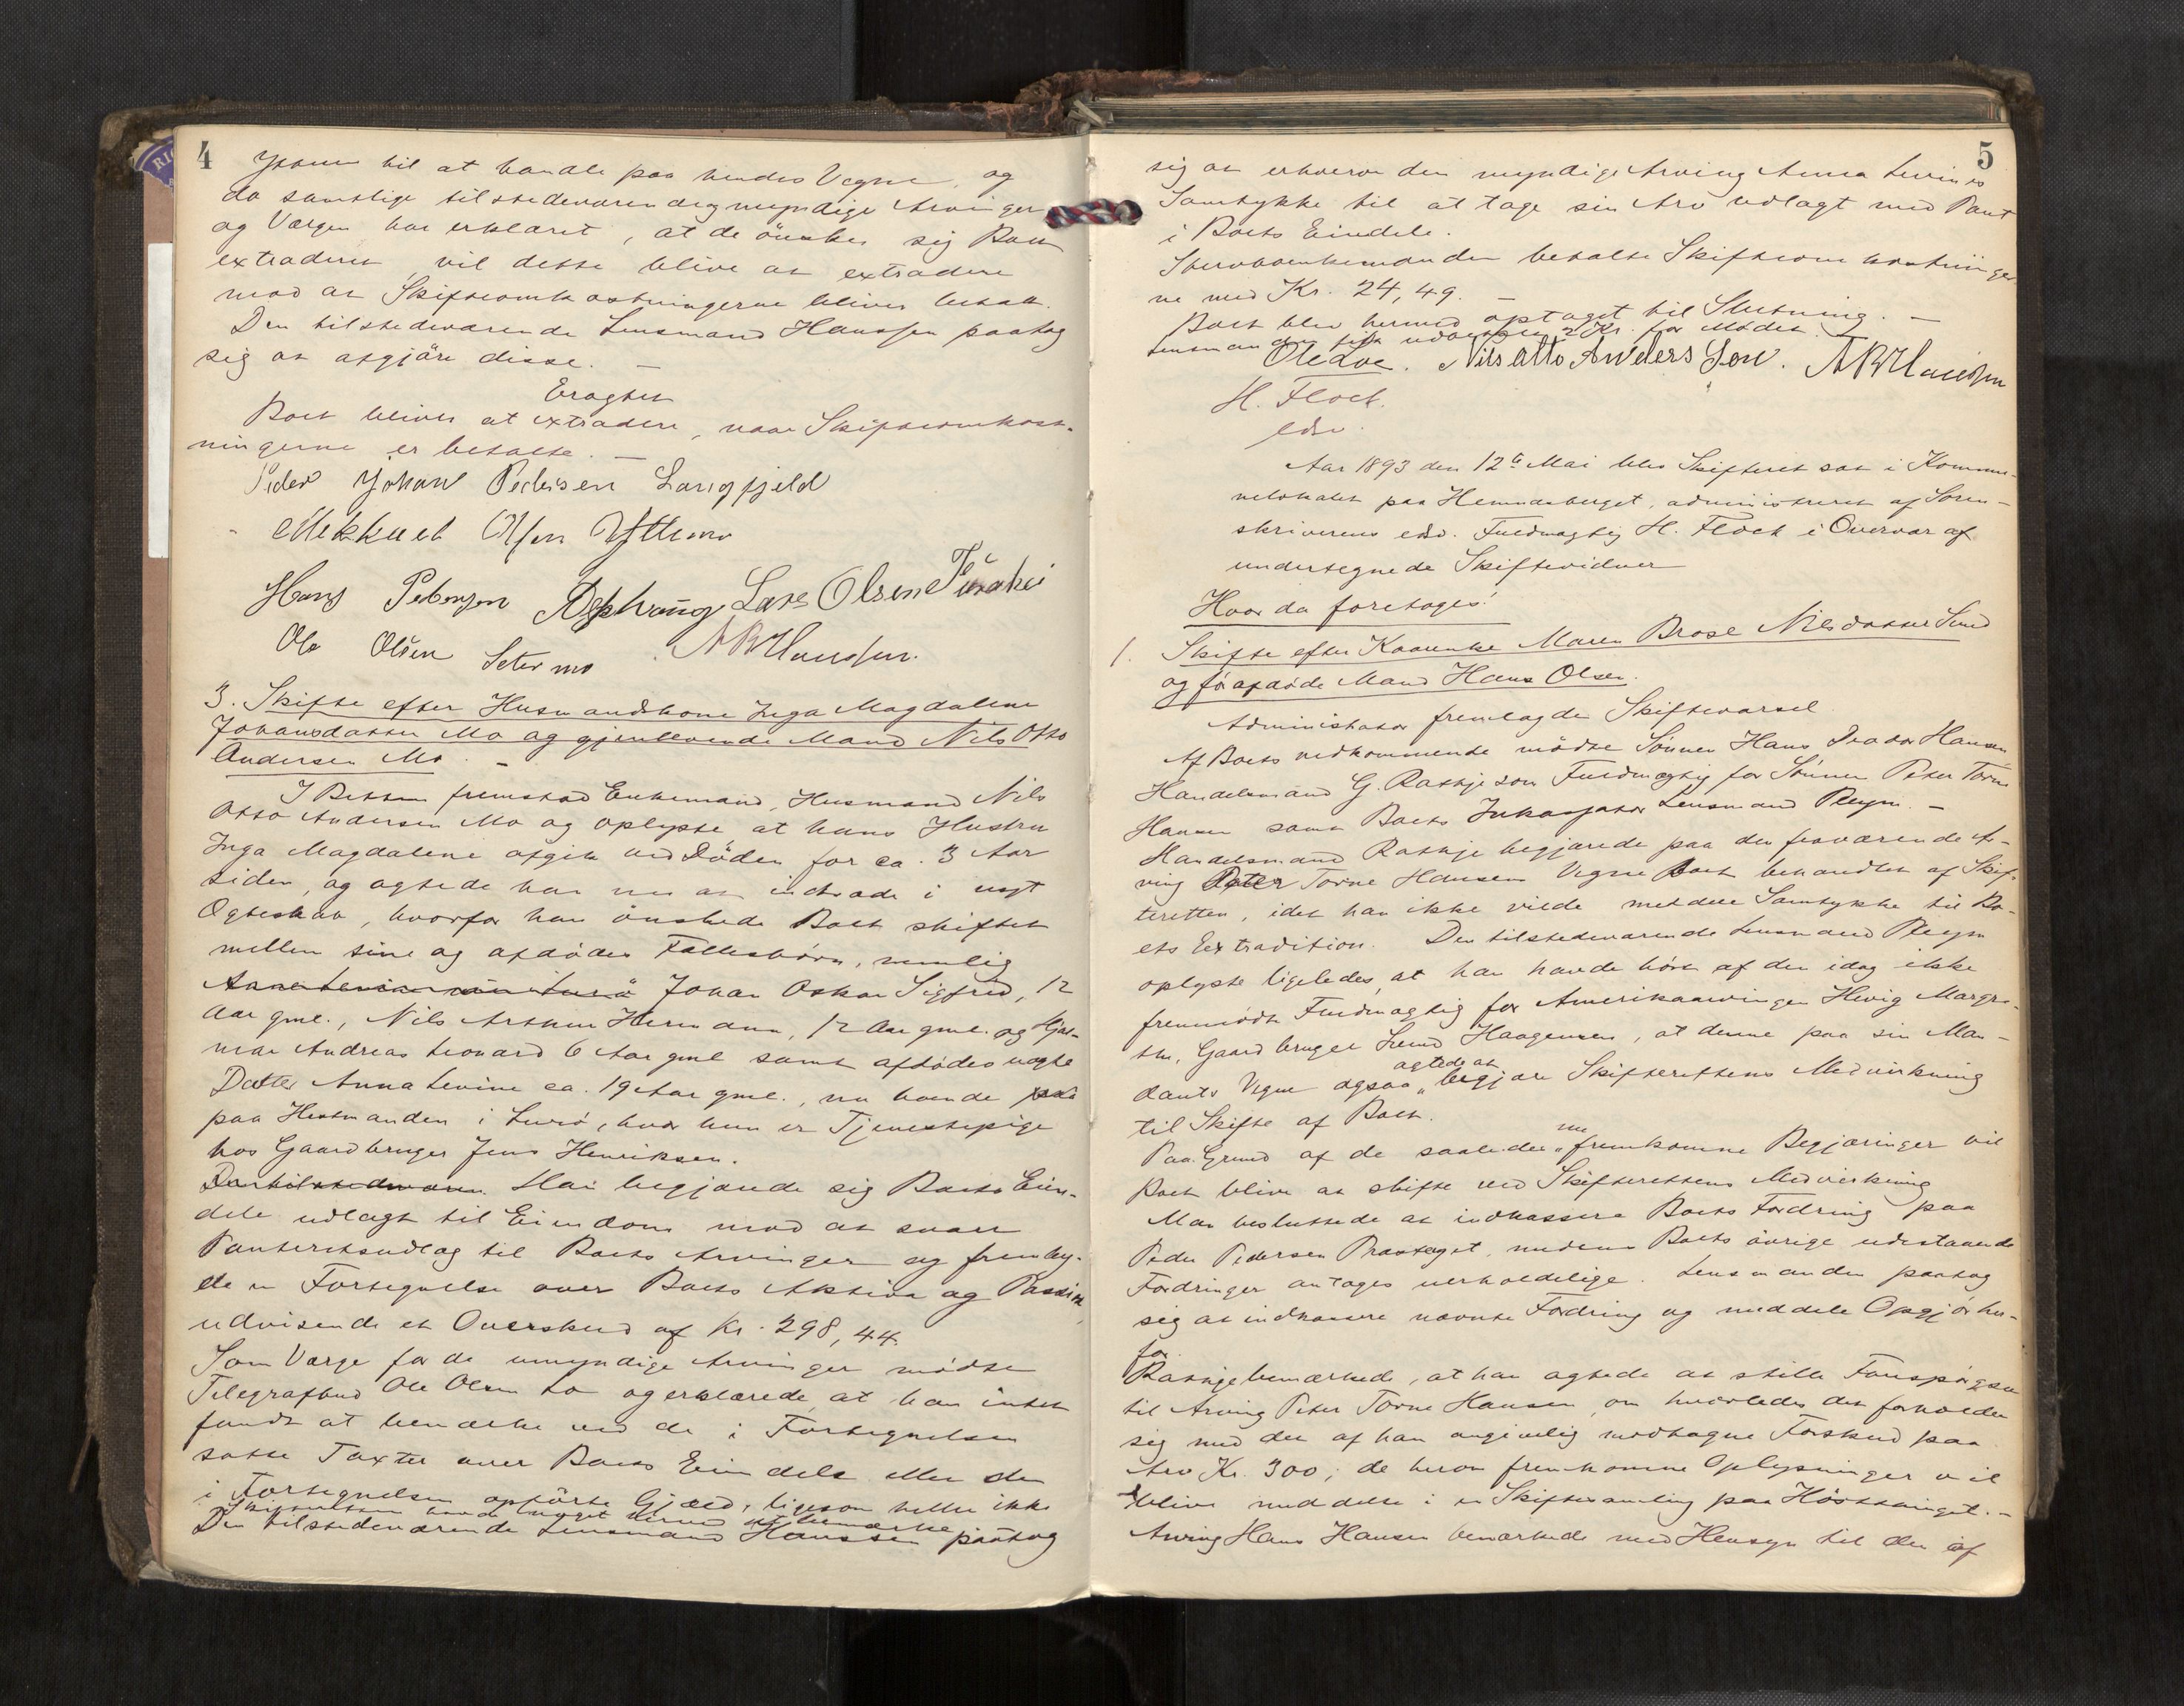 4
Yttern til at handle paa hendes Vegne, og
da samtlige tilstedeværende myndige Arvinger
og Værgen har erklæret, at de ønsker sig Boet
extraderet, vil dette blive at extradere
mod at Skifteomkostningerne bliver betalt.
Den tilstedeværende Lensmand Hanssen paatog
sig at afgjøre disse. —
Eragtet
Boet bliver at extradere, naar Skifteomkost-
ningerne er betalte. —
Peder Johan Pedersen Langfjeld
Mekkael Olsen Ytteren
Hans Petersen Lars Olsen
Ole Olsen Setermo ABHanssen.
3. Skifte efter Husmandskone Inga Magdalene
Johansdatter Mo og gjenlevende Mand Nils Otto
Andersen Mo. —
I Retten fremstod Enkemand, Husmand Nils
Otto Andersen Mo og oplyste at hans Hustru
Inga Magdalene afgik ved Døden for ca. 3 Aar
siden, og agtede han nu at indtræde i nyt
Ægteskab, hvorfor han ønskede Boet skiftet
mellem sine og afdødes Fællesbørn, nemlig
Johan Oskar Sigfred, 12
Aar gml., Nils Arthur Hermann, 12 Aar gml. og Hjal-
mar Andreas Leonard 6 Aar gml samt afdødes uægte
Datter Anna Levine ca. 19 Aar gml., nu boende
paa Hestmanden i Lurø, hvor hun er Tjenestepige
hos Gaardbruger Jens Henriksen.
Den tilstedeværen Han begjærede sig Boets Eien-
dele udlagt til Eiendom mod at svare
Panteretsudlæg til Boets Arvinger og fremlag-
de en Fortegnelse over Boets Aktiva og Passiva,
udvisende et Overskud af Kr. 298,44.
Som Værge for de umyndige Arvinger mødte
Telegrafbud Ole Olsen Lo og erklærede, at han intet
fandt at bemærke ved de i Fortegnelsen
satte Taxter over Boets Eiendele eller den
i Fortegnelsen opførte Gjæld, ligesom heller ikke
Skifteretten havde noget herved at bemærke
Den tilstedeværende Lensmand Hanssen paatog
5
sig at erhverve den myndige Arving Anna Levines
Samtykke til at tage sin Arv udlagt med Pant
i Boets Eiendele.
Stervboenkemanden betalte Skifteomkostninger
ne med Kr. 24,49. —
Boet blev hermed optaget til Slutning. —
Lensmanden fik udbetalt 2 Kr. for Mødet.
Ole Loe. Nils Otto Anders Sen. ABHanssen
H. Flock.
edsv.
Aar 1893 den 12te Mai blev Skifteret sat i Kommu-
nelokalet paa Hemnesberget, administreret af Soren-
skriverens edsv. Fuldmægtig H. Flock i Overvær af
undertegnede Skiftevidner
Hvor da foretoges:
1. Skifte efter Kaarenke Maren Brose Nilsdatter Sund
og før afdøde Mand Hans Olsen.
Administrator fremlagde Skiftevarsel.
Af Boets vedkommende mødte Sønnen Hans Hansen
Handelsmand G. Rathje som Fuldmægtig for Sønnen Peter Torne
Hansen samt Boets Inkassator Lensmand Pleym. —
Handelsmand Rathje begjærede paa den fraværende Ar-
ving Peter Torne Hansens Vegne Boet behandlet af Skif-
teretten, idet han ikke vilde meddele Samtykke til Bo-
ets Extradition. Den tilstedeværende Lensmand Pleym
oplyste ligeledes, at han havde hørt af den idag ikke
fremmødte Fuldmægtig for Amerikaarvingen Hevig Margre-
the, Gaardbruger Svend Haagensen, at denne paa sin Man-
dants Vegne ogsaa agtede at begjære Skifterettens Medvirkning
til Skifte af Boet.
Paa Grund af de saaledes nu fremkomne Begjæringer vil
Boet blive at skifte ved Skifterettens Medvirkning
Man besluttede at indkassere Boets Fordring paa
Peder Pedersen Brastøget, medens Boets øvrige udestaaende
Fordringer antages uerholdelige. Lensmanden paatog
sig at indkassere nævnte Fordring og meddele Opgjør her-
for.
Rathje bemærkede, at han agtede at stille Forespørgsel
til Arving Peter Torne Hansen, om hvorledes det forholder
sig med det af ham angivelig modtagne Forskud paa
Arv Kr. 300; de herom fremkomne Oplysninger vil
blive meddelt i en Skiftesamling paa Høstthinget. —
Arving Hans Hansen bemærkede med Hensyn til den af